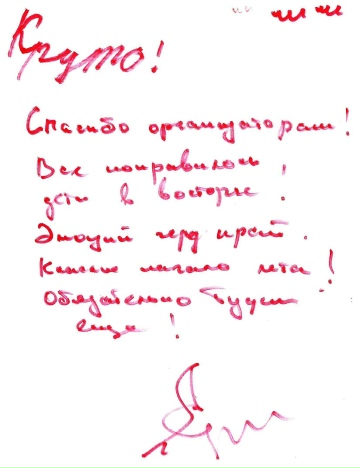 Круто!
Спасибо организаторам!
Все понравилось,
дети в восторге!
Эмоций через край.
Классное начало лета!
Обязательно будем
еще!